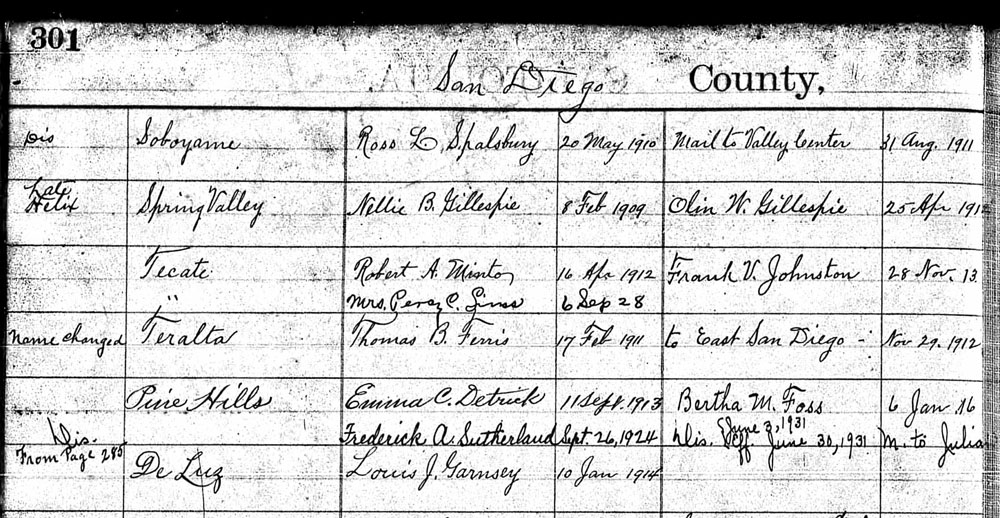 301
San Diego County,
Dis Soboyame Ross L. Spalsbury 20 May 1910 Mail to Valley Center 31 Aug. 1911
Late
Helix Spring Valley Nellie B. Gillespie 8 Feb 1909 Olin W. Gillespie 25 Apr 191
Tecate Robert A. Minto 16 Apr 1912 Frank V. Johnston 28 Nov. 13
" Mrs. Percy C. 6 Sep 28
Name changed Teralta Thomas B. Ferris 17 Feb 1911 to East San Diego - Nov 29. 1912
Pine Hills Emma C. Detrick 11 Sept. 1913 Bertha M. Foss 6 Jan 16
June 3, 1931
Dis. Frederick A. Sutherland Sept. 26, 1924 Dis. eff June 30, 1931 M. to Julian
From Page 285
De Luz Louis J. Garnsey 10 Jan 1914